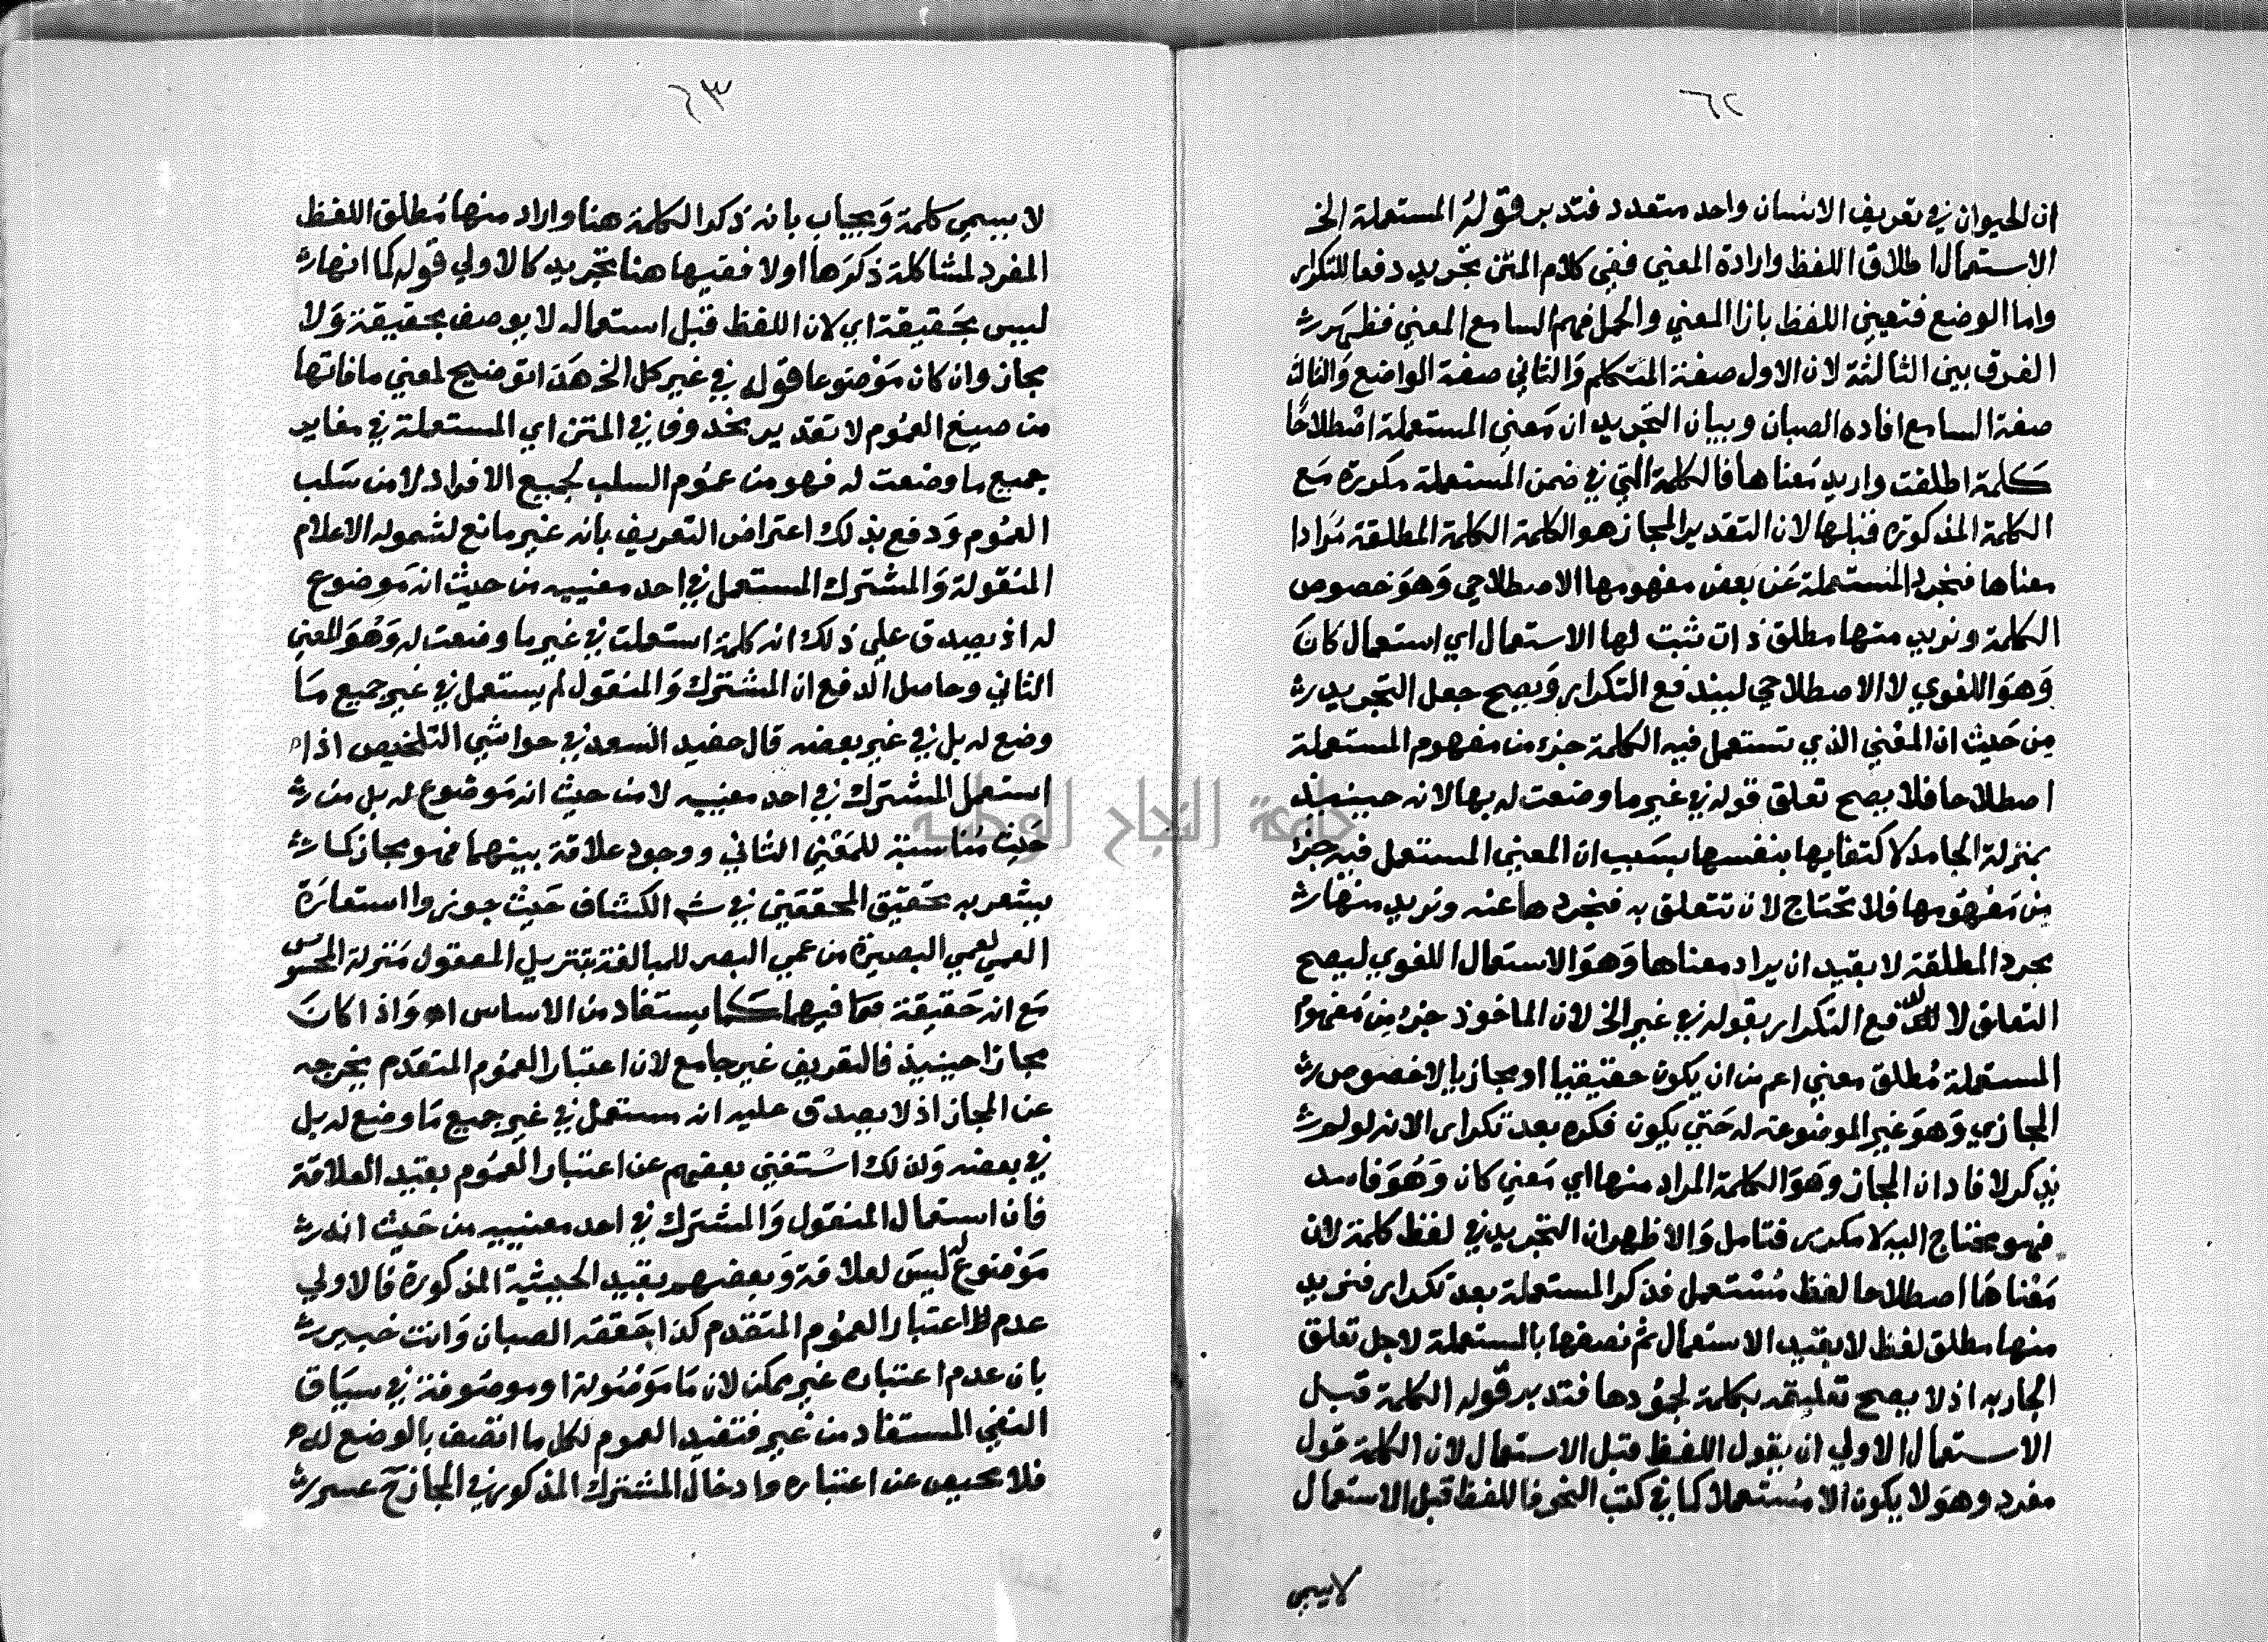 ٦٢
ان الحيوان في تعريف الانسان واحد متعدد فتدبر قوله المستعملة الخ
الاستعمال اطلاق اللفظ وارادة المعني ففي كلام المتن تجريد دفعا للتكرار
واما الوضع فتعيين اللفظ بازا المعني والحمل فهم السامع المعني فظهر
الفرق بين الثالثة لان الاول صفة المتكلم والثاني صفة الواضع والثالث
صفة السامع افاده الصبان وبيان التجريد ان معني المستعملة اصطلاحا
كلمة اطلقت واريد معناها فالكلمة التي في ضمن المستعملة مكررة مع
الكلمة المذكورة قبلها لان التقدير المجاز هو الكلمة الكلمة المطلقة مرادا
معناها فنجرد المستعملة عن بعض مفهومها الاصطلاحي وهو خصوص
الكلمة ونريد منها مطلق ذات ثبت لها الاستعمال اي استعمال كان
وهو اللغوي لا الاصطلاحي ليندفع التكرار ويصح جعل التجريد
من حيث ان المعني الذي تستعمل فيه الكلمة جزء من مفهوم المستعملة
اصطلاحا فلا يصح تعلق قوله في غير ما وضعت له بها لانه حينيذ
بمنزلة الجامد لاكتفايها بنفسها بسبب ان المعني المستعمل فيه جزا
من مفهومها فلا تحتاج لان تتعلق به فنجردها عنه ونريد منها
مجرد المطلقة لا بقيد ان يراد معناها وهو الاستعمال اللغوي ليصح
التعلق لا لدفع التكرار بقوله في غير الخ لان الماخوذ جزء من مفهوم
المستعملة مطلق معني اعم من ان يكون حقيقيا او مجازيا لا خصوص
المجازي وهو غير الموضوعة له حتي يكون ذكره بعد تكرار لانه لو لم
يذكر لافاد ان المجاز وهو الكلمة المراد منها اي معني كان وهو فاسد
فهو محتاج اليه لا مكرر فتامل والاظهر ان التجريد في لفظ كلمة لان
معناها اصطلاحا لفظ مستعمل فذكر المستعملة بعد تكرار فنريد
منها مطلق لفظ لا بقيد الاستعمال ثم نصفها بالمستعملة لاجل تعلق
الجار به اذ لا يصح تعليقه بكلمة لجمودها فتدبر قوله الكلمة قبل
الاستعمال الاولي ان يقول اللفظ قبل الاستعمال لان الكلمة قول
مفرد وهو لا يكون الا مستعملا كما في كتب النحو فاللفظ قبل الاستعمال
لا يسمي
٦٣
لا يسمي كلمة ويجاب بانه ذكر الكلمة هنا واراد منها مطلق اللفظ
المفرد لمشاكلة ذكرها اولا ففيها هنا تجريد كالاولي قوله كما انها
ليس بحقيقة اي لان اللفظ قبل استعماله لا يوصف بحقيقة ولا
مجاز وان كان موضوعا قوله في غير كل الخ هذا توضيح لمعني ما فانها
من صيغ العموم لا تقدير محذوف في المتن اي المستعملة في مغاير
جميع ما وضعت له فهو من عموم السلب لجميع الافراد لا من سلب
العموم ودفع بذلك اعتراض التعريف بانه غير مانع لشموله الاعلام
المنقولة والمشترك المستعمل في احد معنييه من حيث انه موضوع
له اذ يصدق علي ذلك انه كلمة استعملت في غير ما وضعت له وهو المعني
الثاني وحاصل الدفع ان المشترك والمنقول لم يستعمل في غير جميع ما
وضع له بل في غير بعضه قال حفيد السعد في حواشي التلخيص اذا
استعمل المشترك في احد معنييه لا من حيث انه موضوع له بل من
حيث مناسبته للمعني الثاني ووجود علاقة بينهما فهو مجاز كما
يشعر به تحقيق المحققين في شم الكشاف حيث جوزوا استعارة
العمي لعمي البصيرة من عمي البصر للمبالغة بتنزيل المعقول منزلة المحسوس
مع انه حقيقة فيهما كما يستفاد من الاساس اه واذا كان
مجازا حينيذ فالتعريف غير جامع لان اعتبار العموم المتقدم يخرجه
عن المجاز اذ لا يصدق عليه انه مستعمل في غير جميع ما وضع له بل
في بعضه ولذلك استغني بعضهم عن اعتبار العموم بقيد العلاقة
فان استعمال المنقول والمشترك في احد معنييه من حيث انه
موضوع له ليس لعلاقة وبعضهم بقيد الحيثية المذكورة فالاولي
عدم اعتبار العموم المتقدم كذا حققه الصبان وانت خبير
بان عدم اعتباره غير ممكن لان ما موصولة او موصوفة في سياق
النفي المستفاد من غير فتفيد العموم لكل ما اتصف بالوضع له
فلا محيص عن اعتباره وادخال المشترك المذكور في المجاز ح عسر
جامعة النجاح الوطنية